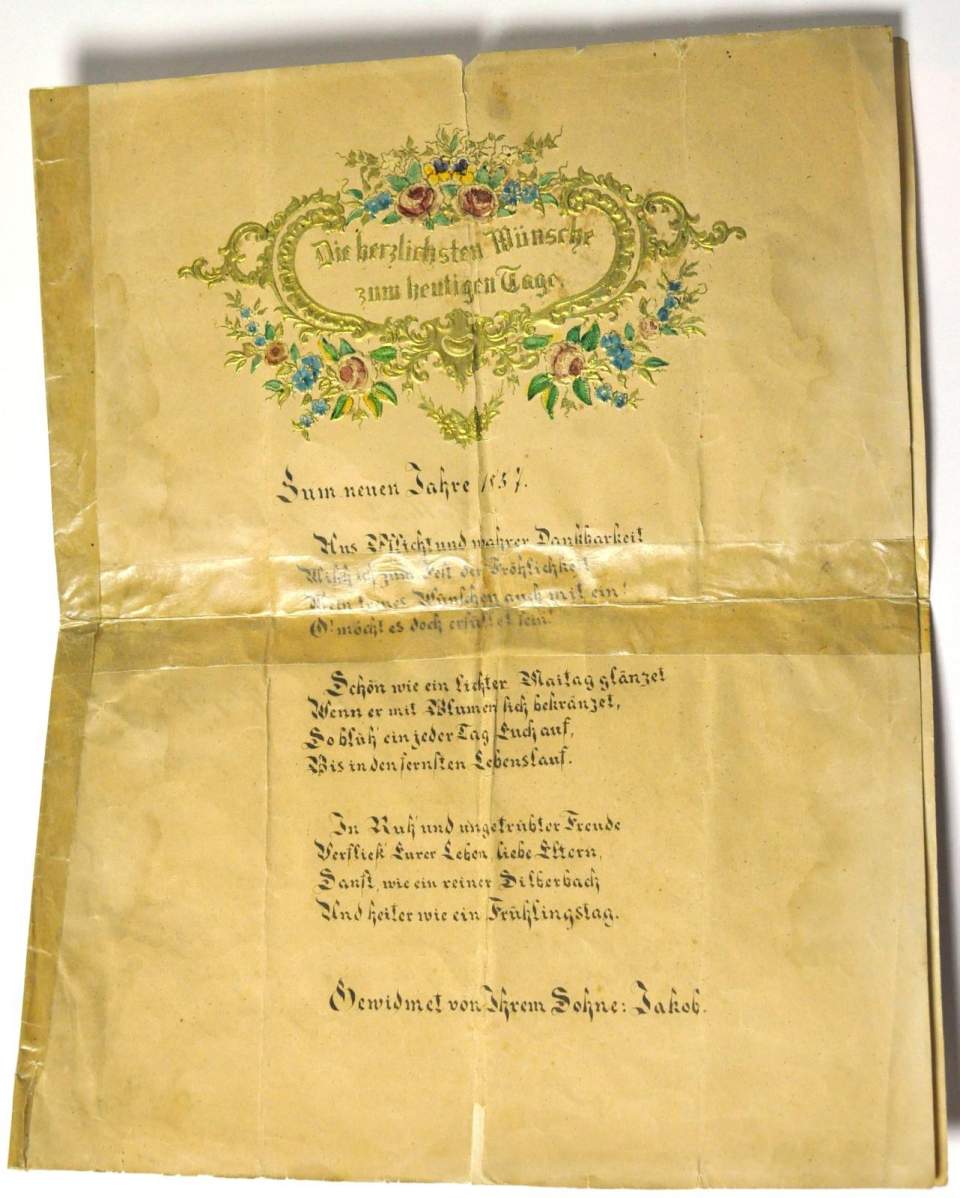 Die herzlichsten Wünsche
zum heutigen Tage.
Zum neuen Jahre 1857.
Aus Pflicht und wahrer Dankbarkeit
Misch ich zum Fest der Fröhlichkeit
Mein treues Wünschen auch mit ein!
O! möcht es doch erfüllet sein!
Schön wie ein lichter Maitag glänzet
Wenn er mit Blumen sich bekränzet,
So blüh' ein jeder Tag Euch auf,
Bis in den fernsten Lebenslauf.
In Ruh' und ungetrübter Freude
Verfließ' Eurer Leben, liebe Eltern,
Sanft, wie ein reiner Silberbach
Und heiter wie ein Frühlingstag.
Gewidmet von Ihrem Sohne: Jakob.